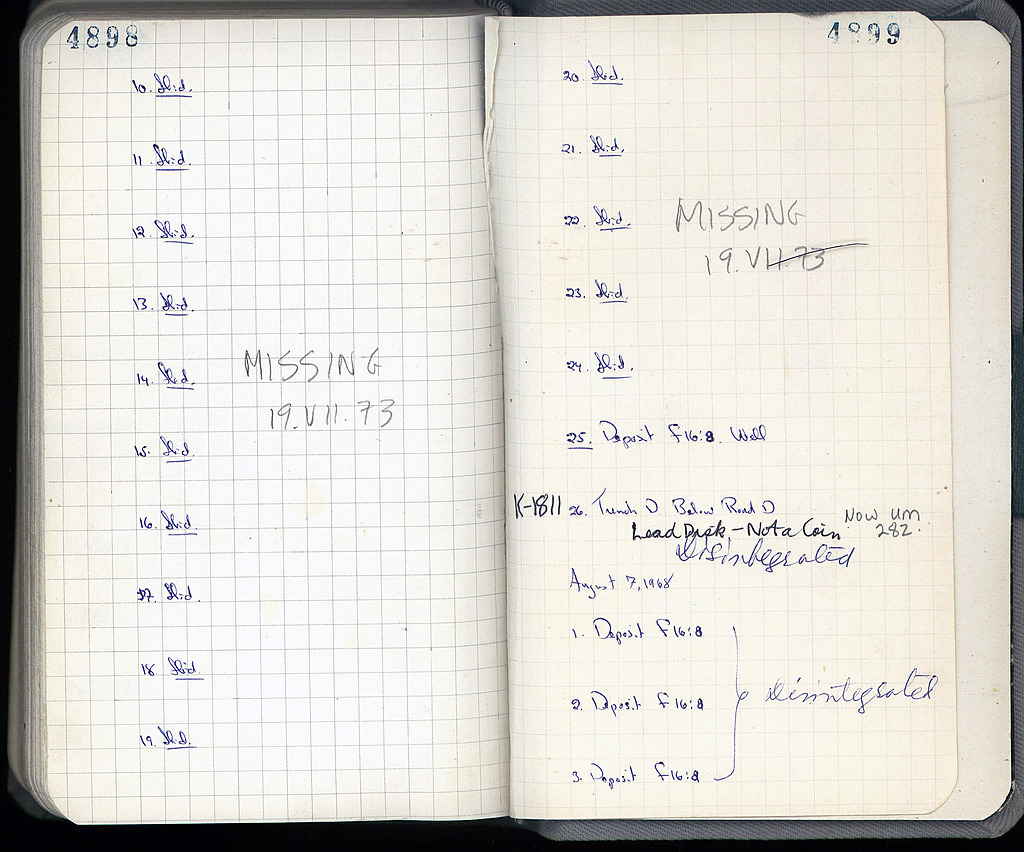 4898
10. Ibid.
11. Ibid.
12. Ibid.
13. Ibid
14. Ibid.
MISSING
19.VII.73
15. Ibid.
16. Ibid.
17. Ibid.
18. Ibid.
19. Ibid.
4899
20. Ibid.
21. Ibid.
22. Ibid.
MISSING
19.VII.73
23. Ibid.
24. Ibid.
25. Deposit F16:8. Well
K-1811 26. Trench O Below Road O
Lead Disk - Not a Coin.
Now
282.
Disintegrated
August 7, 1968
1. Deposit F16:8
2. Deposit F16:8
Disintegrated
3. Deposit F16:8